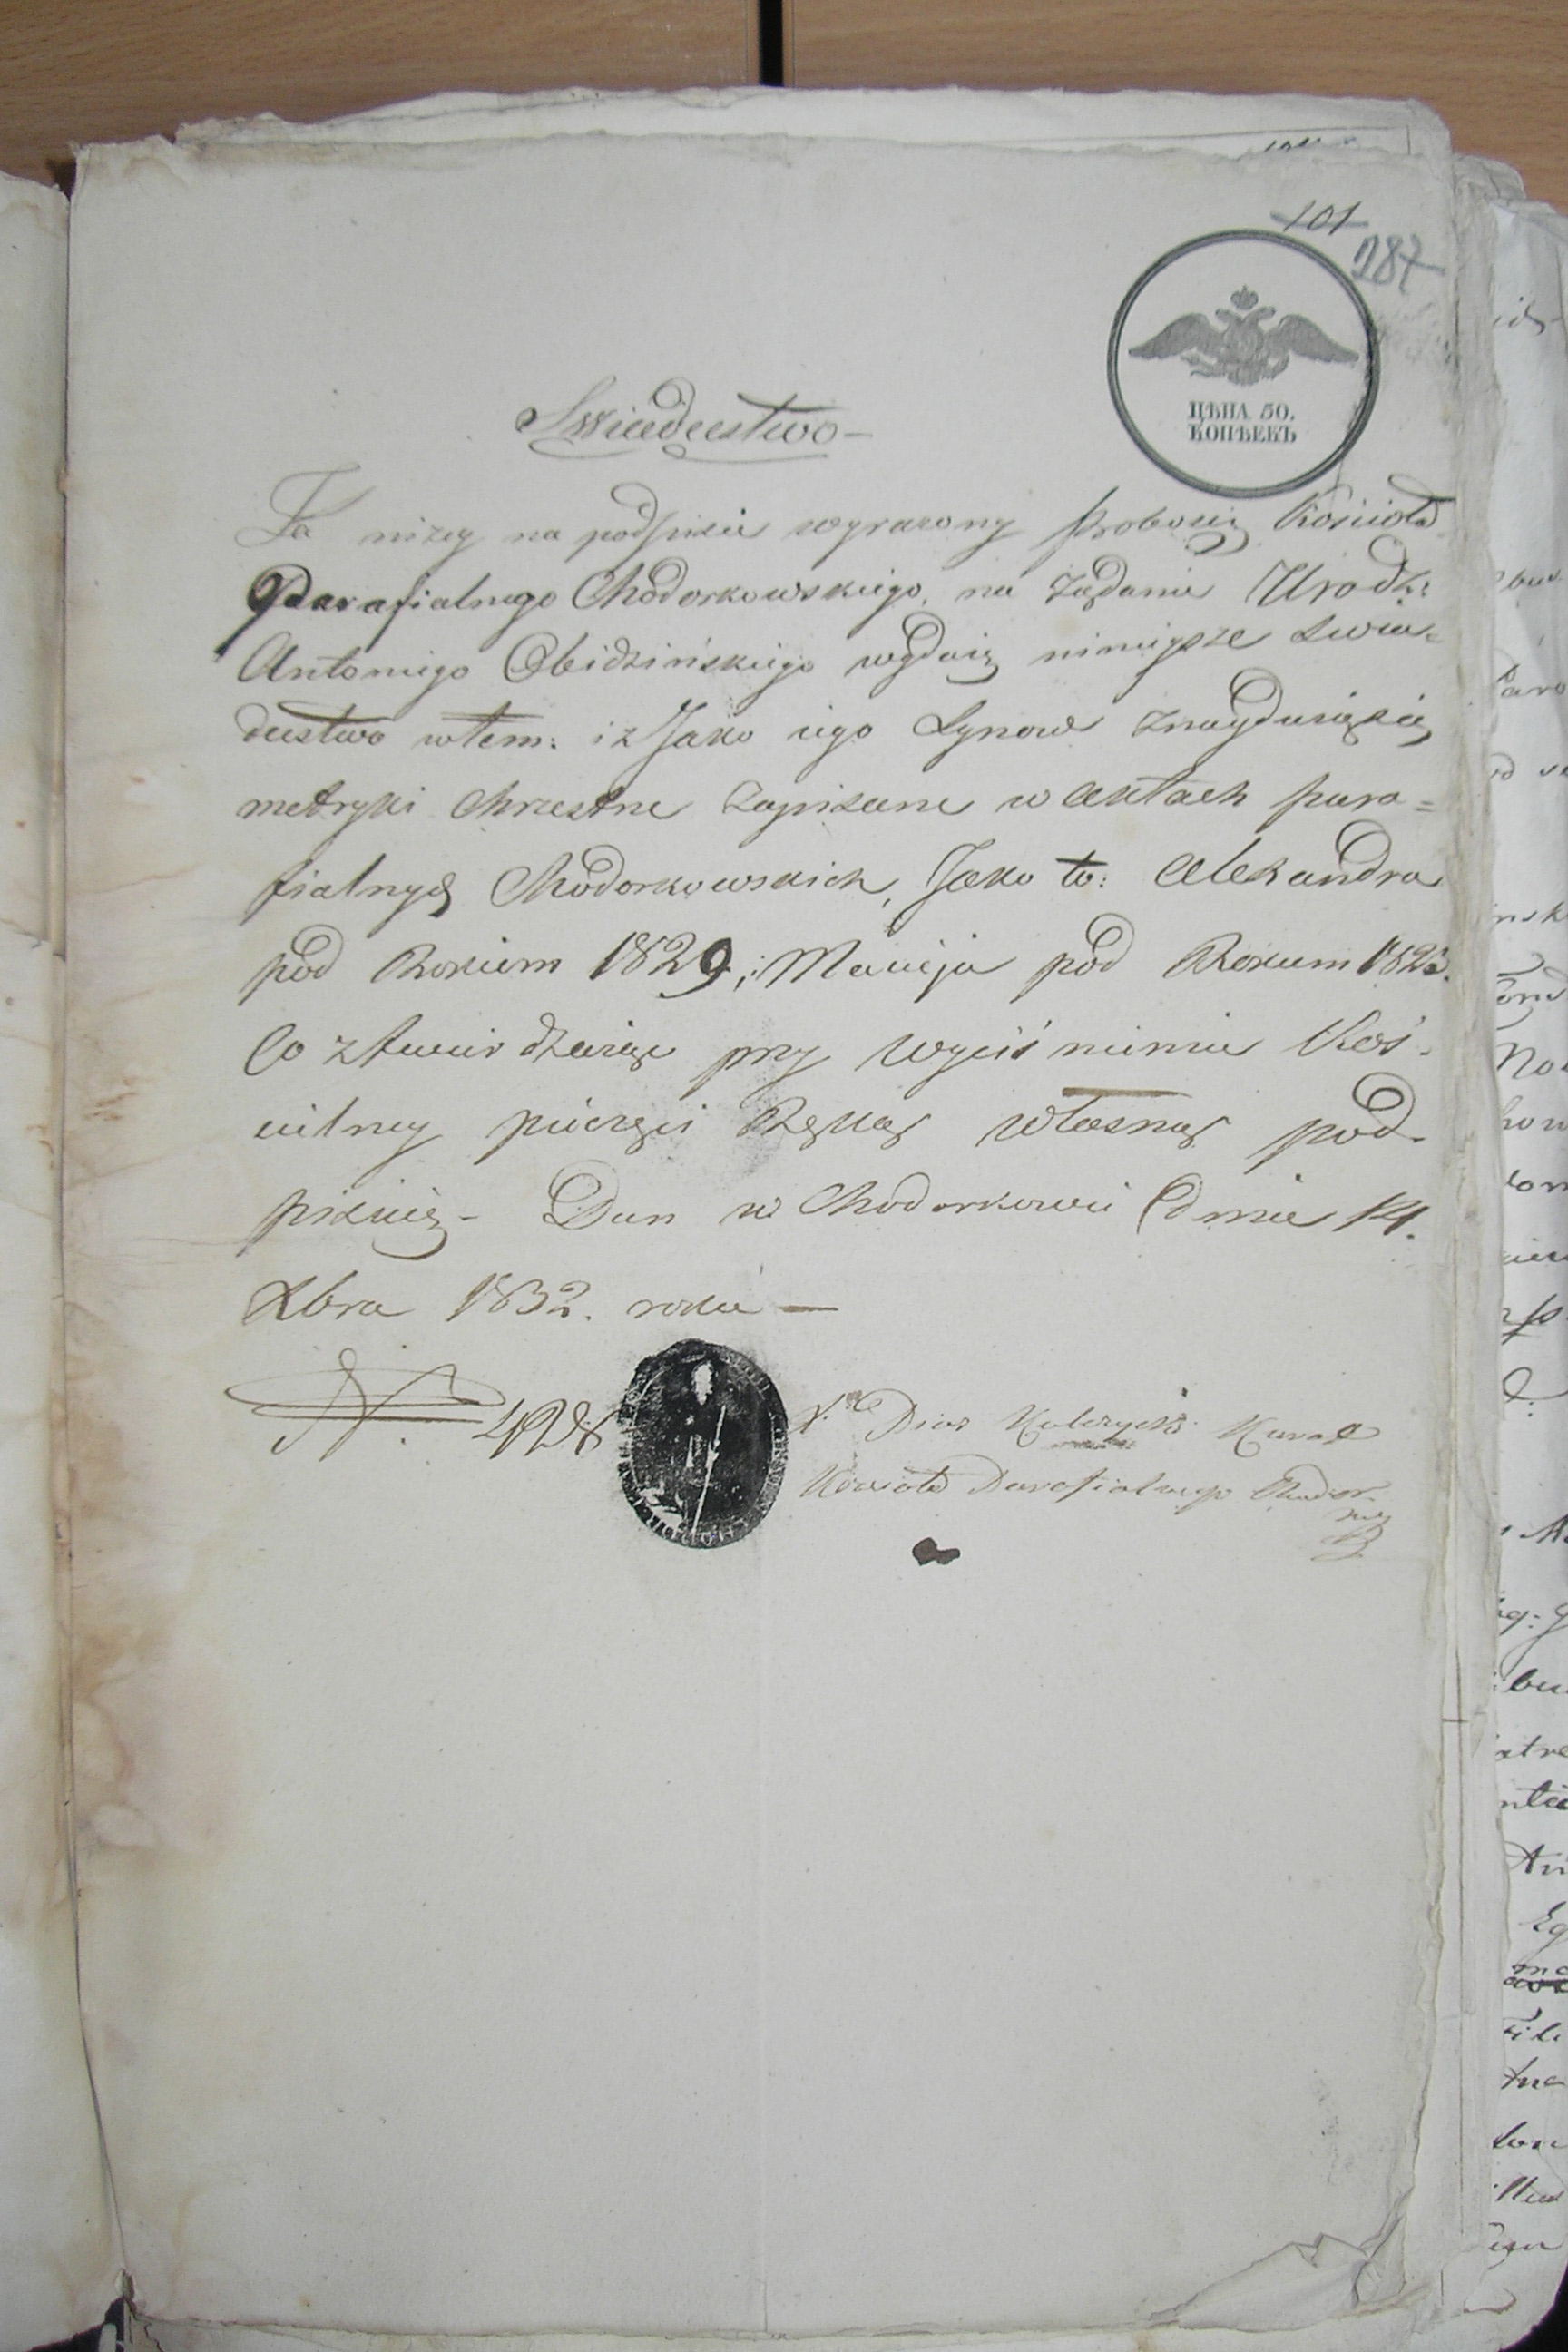 101
287
ЦѢНА 50.
КОПѢЕКЪ
Swiadectwo —
Ja niżey na podpisie wyrażony Proboszcz Kościoła
Parafialnego Chodorkowskiego, na żądanie Urodz:
Antoniego Obidzińskiego wydaię ninieysze Swia=
dectwo wtem: iż Jako iego Synow znayduięsię
metryki Chrzestne zapisane w Aktach para=
fialnych Chodorkowskich, Jako to: Alexandra
pod Rokiem 1829, i Macieja pod Rokiem
Co ztwierdzaiąc przy wyciśnieniu Koś-
cielney pieczęci Ręką własną pod-
pisuię - Dan w Chodorkowie dnia 14.
Xbra 1832. roku —
N. 428
X. Pius Kulczycki Kurat
Kościoła Parafialnego Chodor-